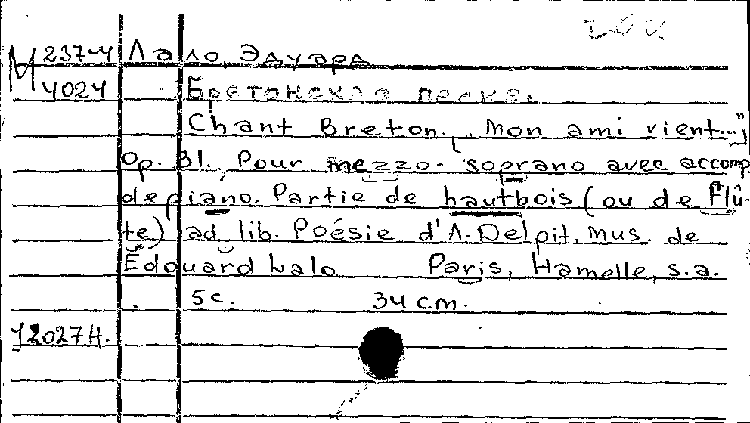 М 237-4 Лало, Эдуард
4024 Бретонская песня.
Chant Breton. „Mon ami vient..."
Op. 31. Pour mezzo-soprano avec accomp
de piano. Partie de hautbois (ou de Flû-
te) ad lib. Poésie d'A. Delpit. Mus. de
Edouard Lalo Paris, Hamelle, s.a.
5c. 34 cm.
J.2027H.